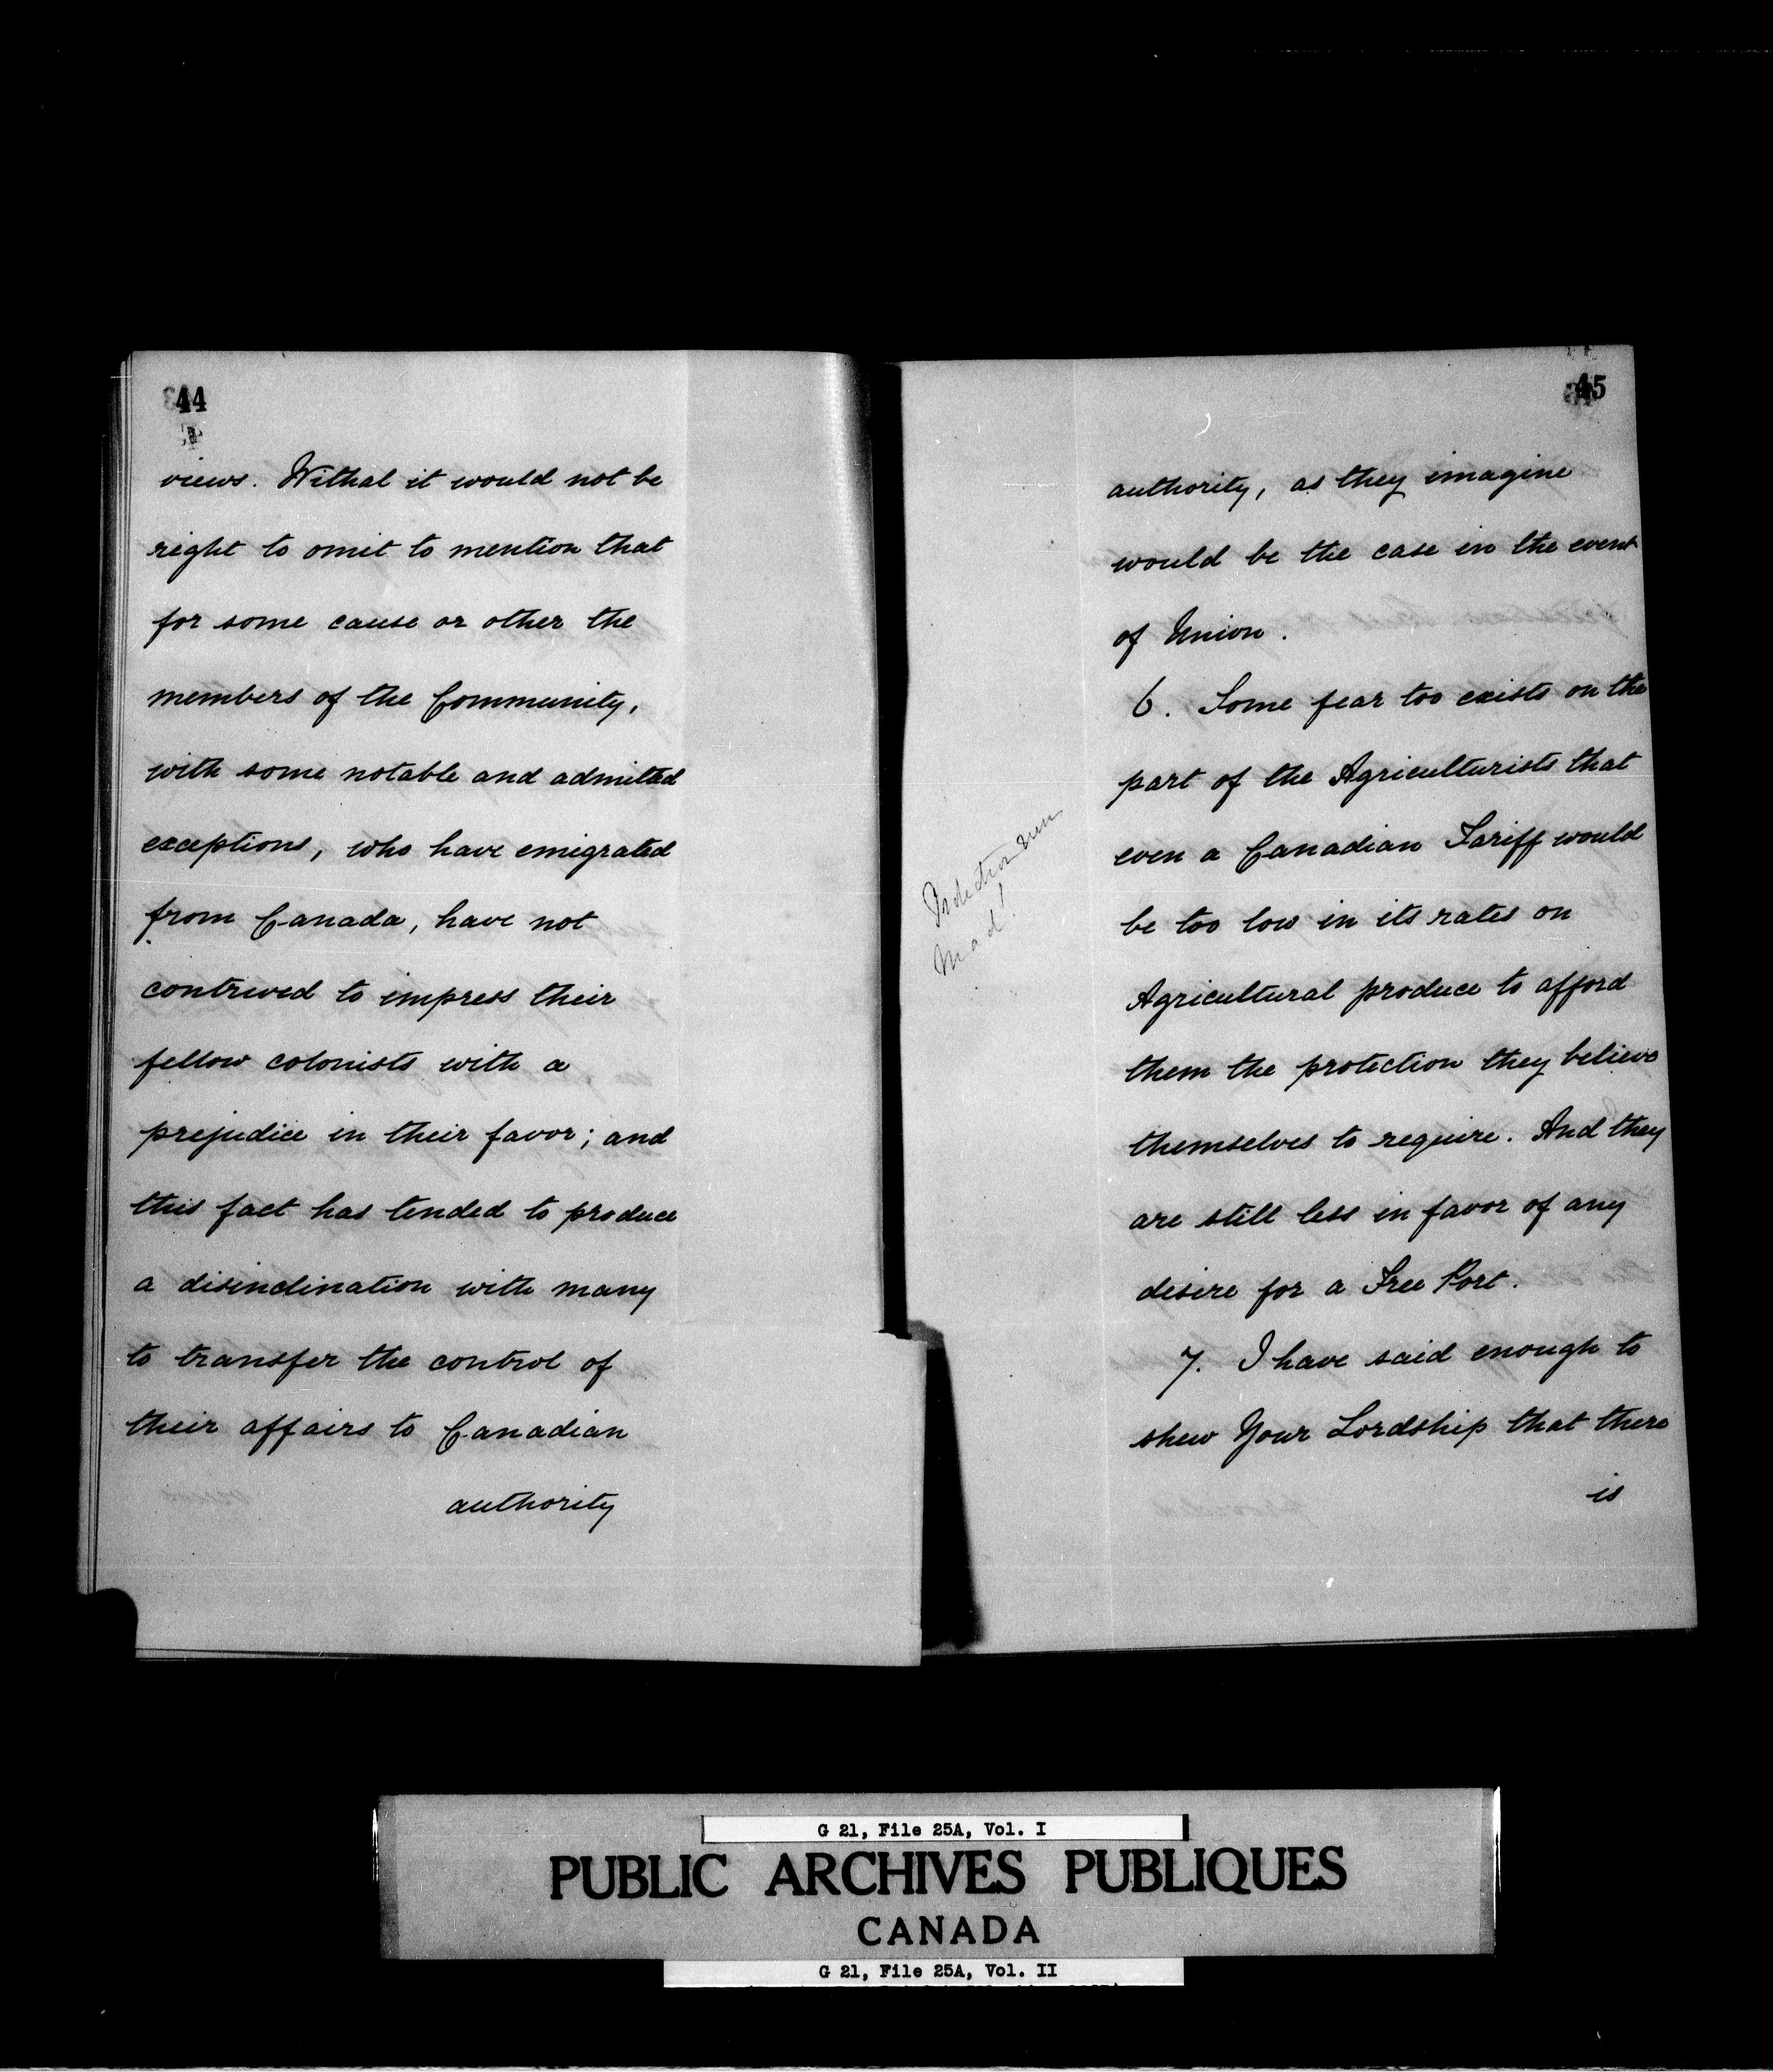 44
views. Withal it would not be
right to omit to mention that
for some cause or other the
members of the Community,
with some notable and admitted
exceptions, who have emigrated
from Canada, have not
contrived to impress their
fellow colonists with a
prejudice in their favor; and
this fact has tended to produce
a disinclination with many
to transfer the control of
their affairs to Canadian
authority
45
authority, as they imagine
would be the case in the event
of Union.
6. Some fear too exists on the
part of the Agriculturists that
even a Canadian Tariff would
be too low in its rates on
Agricultural produce to afford
them the protection they believe
themselves to require. And they
are still less in favor of any
desire for a Free Port.
7. I have said enough to
shew Your Lordship that there
is
Mad!
G 21, File 25A, Vol. I
PUBLIC ARCHIVES PUBLIQUES
CANADA
G 21, File 25A, Vol. II